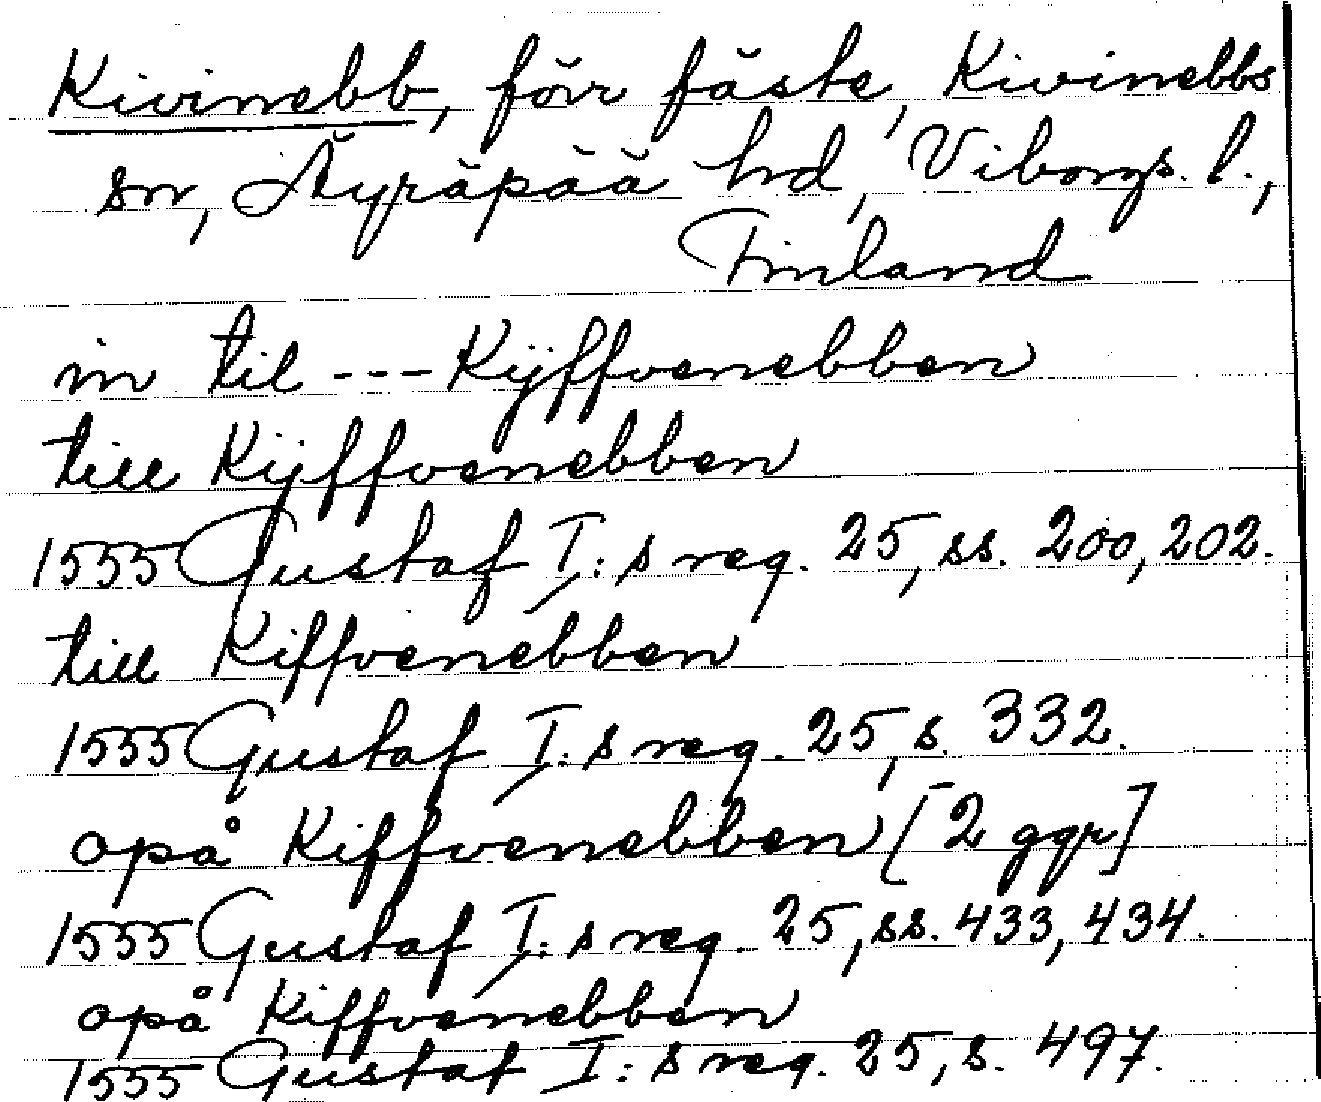 Kivinebb, förr fäste, Kivinebbs
sn, Äyräpää hd, Viborgs l.,
Finland
in til --- Kÿffvenebben
till Kÿffvenebben
1555 Gustaf I:s reg. 25, ss. 200, 202.
till Kiffvenebben
1555 Gustaf I:s reg. 25, s. 332.
opå Kiffvenebben [2 ggr]
1555 Gustaf I:s reg. 25, ss. 433, 434.
opå Kiffvenebben
1555 Gustaf I:s reg. 25, s. 497.